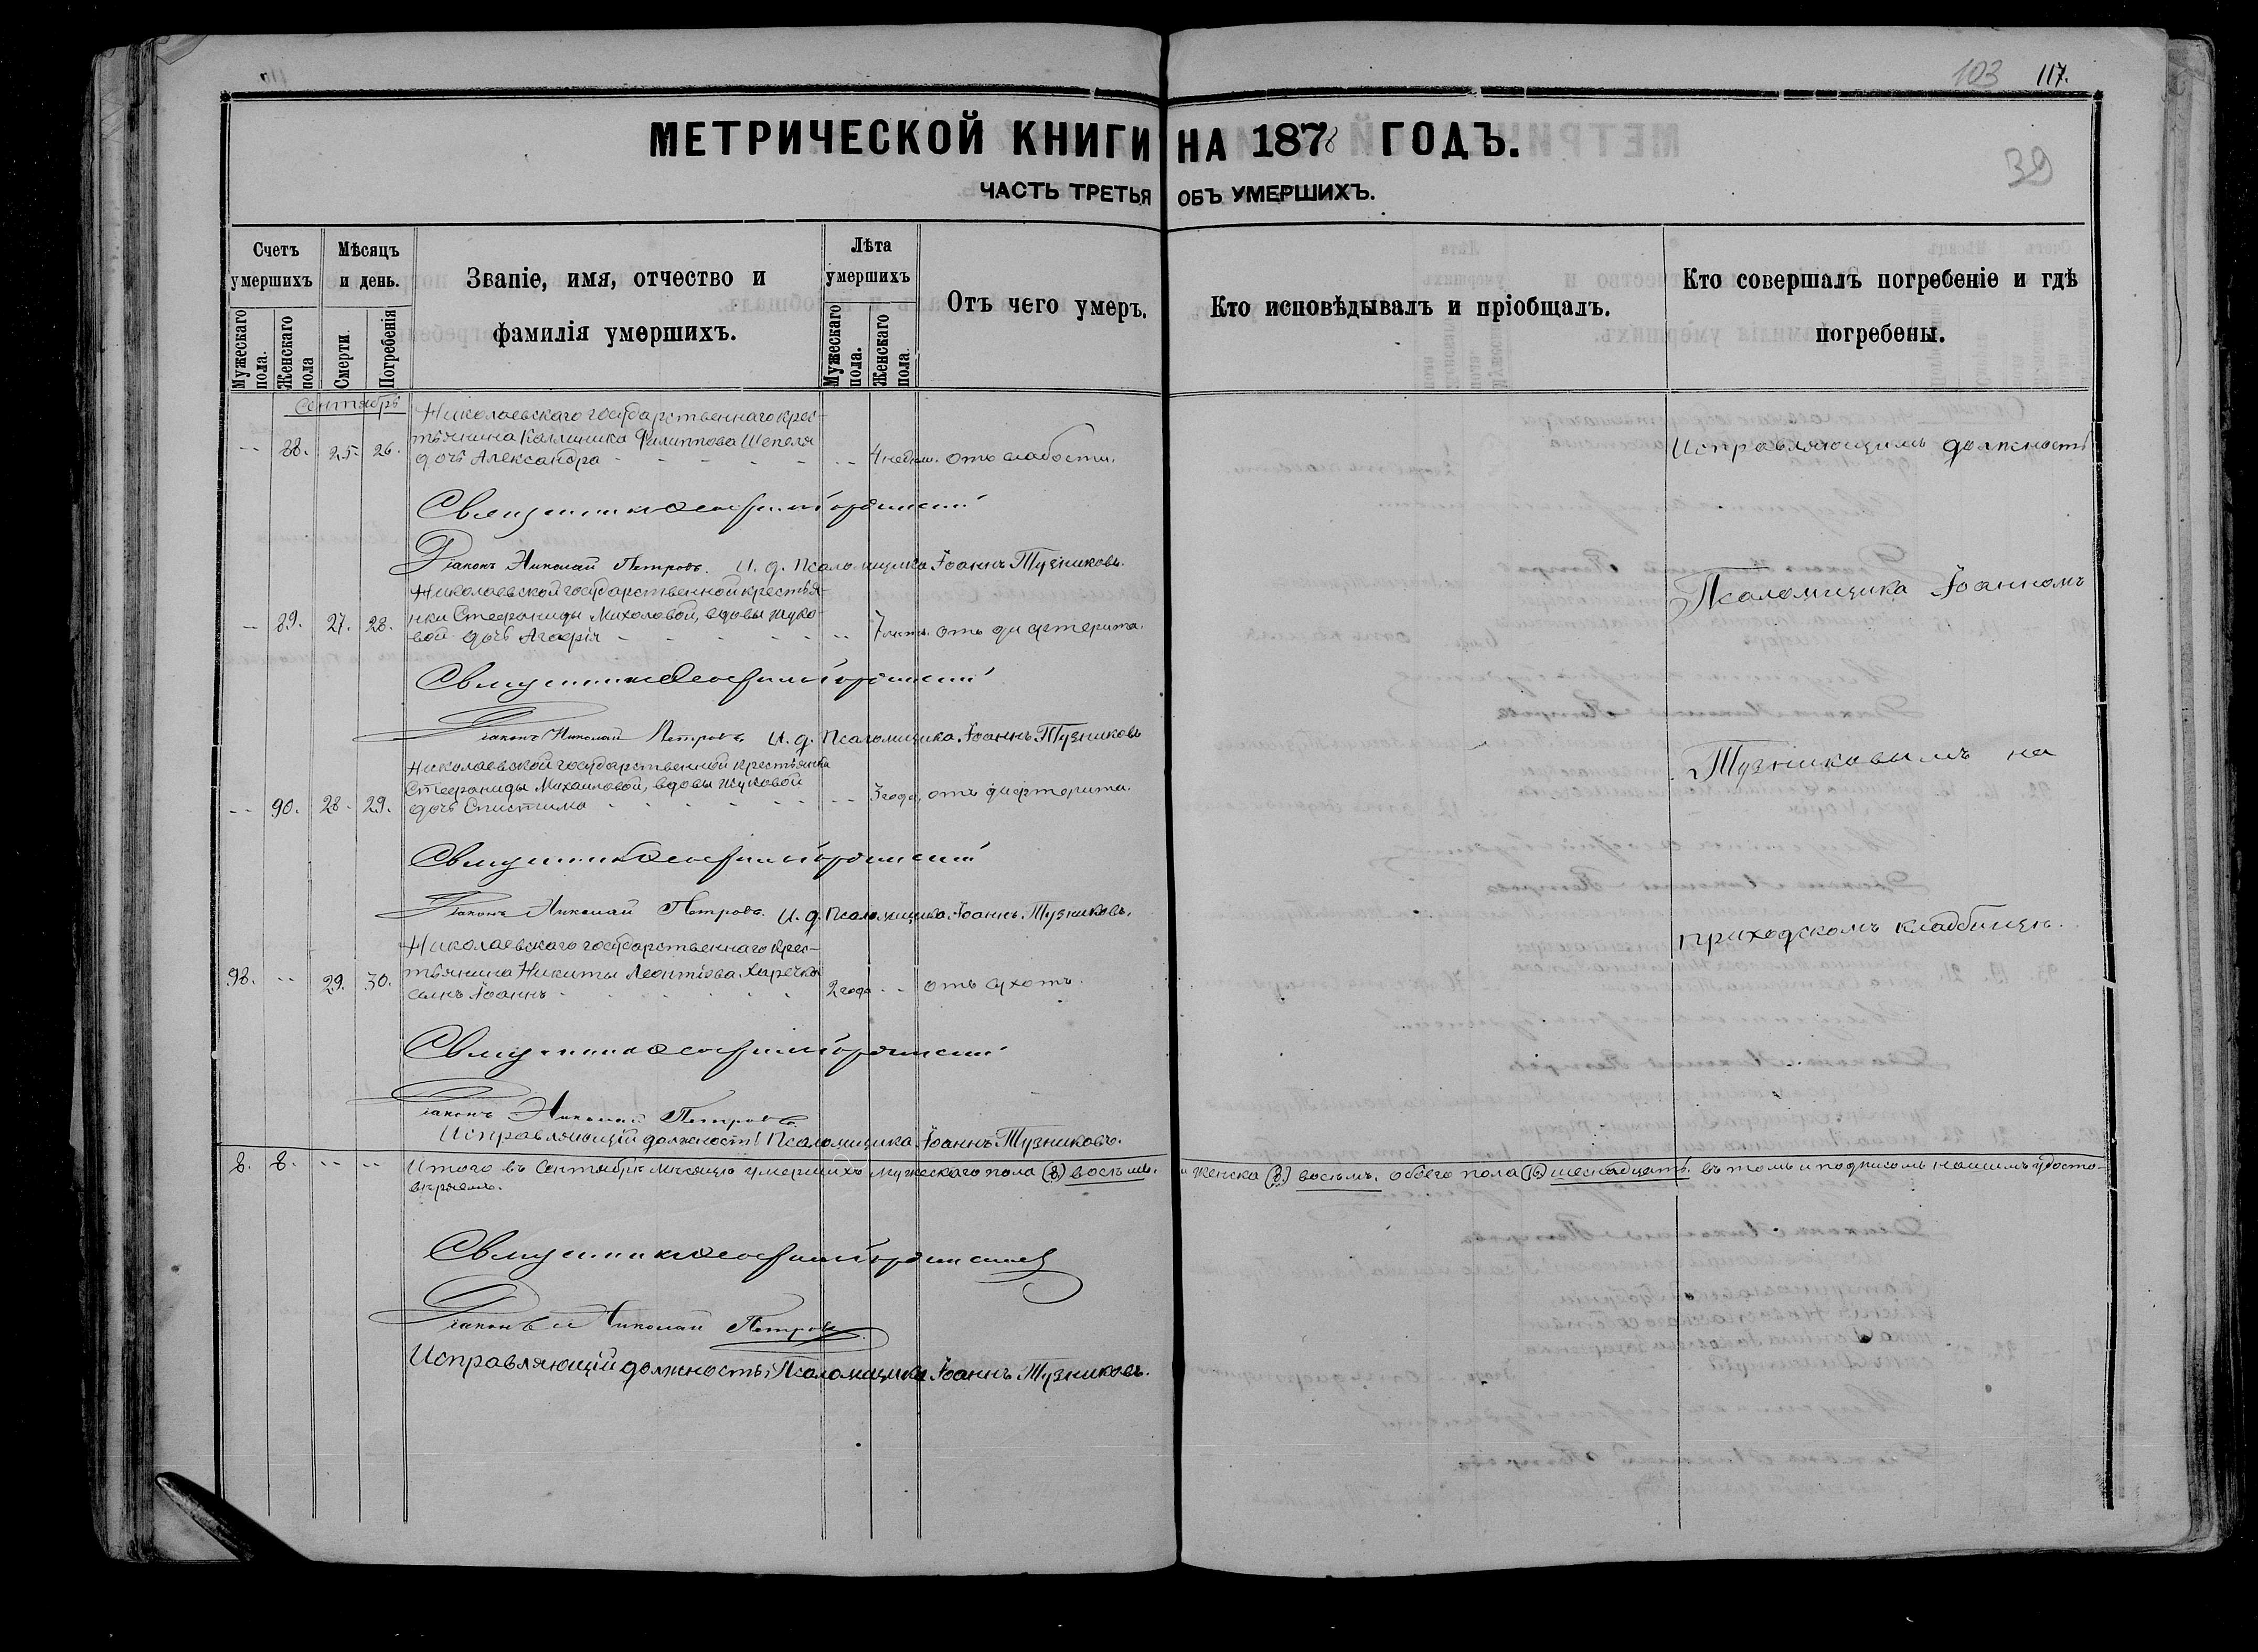 103 117.
МЕТРИЧЕСКОЙ КНИГИ НА 1878 ГОДЪ.
39
ЧАСТЬ ТРЕТЬЯ ОБЪ УМЕРШИХЪ.
Счетъ умершихъ
Мужескаго пола.
Женскаго пола
Мѣсяцъ и день.
Смерти.
Погребенія
Званіе, имя, отчество и
фамилія умершихъ.
Лѣта умершихъ
Мужескаго пола.
Женскаго пола.
Отъ чего умеръ.
Кто исповѣдывалъ и пріобщалъ.
Кто совершалъ погребеніе и гдѣ
погребены.
Сентябрь
Николаевскаго государственнаго крес-
-- 88. 25. 26. тьянина Каллиника Филиппова Шепеля
дочь Александра -- 4 недѣли. отъ слабости.
Исправляющимъ должность
Священникъ
Діаконъ Николай Петровъ. И. д. Псаломщика Іоаннъ Тузниковъ.
Николаевской государственной крестья-
-- 89. 27. 28. нки Стефаниды Михоловой, вдовы Жуко-
вой дочь Агафія -- 7 лѣтъ. отъ дифтерита.
Псаломщика Іоанномъ
Священникъ
Діаконъ Николай Петровъ. И. д. Псаломщика Іоаннъ Тузниковъ
Николаевской государственной крестьянки
Стефаниды Михаиловой, вдовы Жуковой
-- 90. 28. 29. дочь Епистима -- 3 года, отъ дифтерита.
Тузниковымъ на
Священникъ
Діаконъ Николай Петровъ. И. д. Псаломщика Іоаннъ Тузниковъ.
приходскомъ кладбищѣ.
Николаевскаго государственнаго крес-
98. -- 29. 30. тьянина Никиты Леонтіова Харечка
сынъ Іоаннъ 2 года -- отъ сухотъ.
Священникъ
Діаконъ Николай Петровъ.
Исправляющій должность Псаломщика Іоаннъ Тузниковъ.
8. 8. -- -- Итого въ Сентябрѣ мѣсяцѣ умершихъ мужескаго пола (8) восемь. и женска (8) восемь. обоего пола (16) шеснадцать. въ томъ и подписомъ нашимъ удосто-
вѣряемъ.
Священникъ
Діаконъ Николай Петровъ
Исправляющій должность Псаломщика Іоаннъ Тузниковъ.